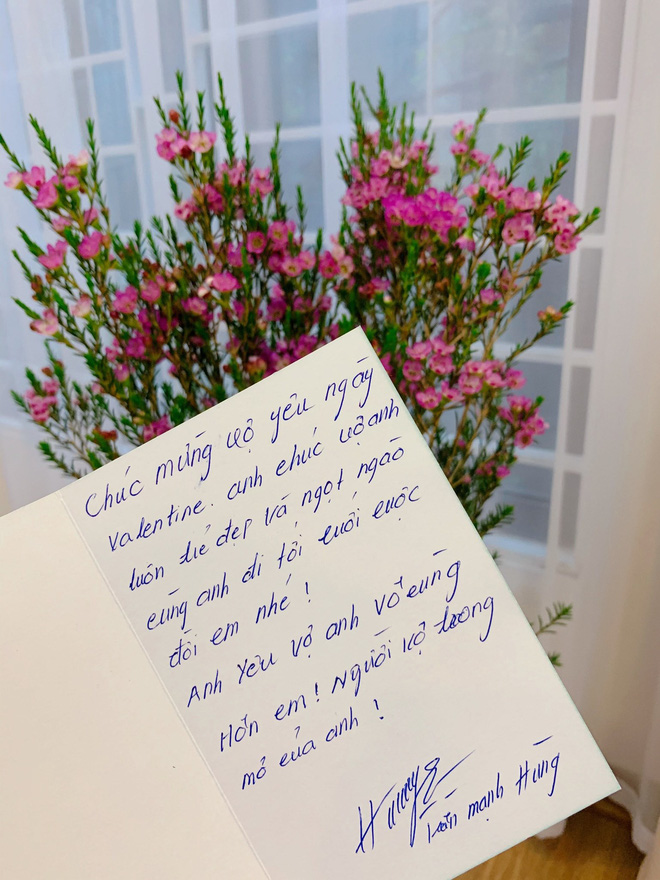 Chúc mừng vợ yêu ngày
Valentine. anh chúc vợ anh
luôn trẻ đẹp và ngọt ngào
cùng anh đi tới cuối cuộc
đời em nhé!
Anh yêu vợ anh Vô cùng
Hôn em! Người vợ trong
mơ của anh!
Hùng
Trần mạnh Hùng